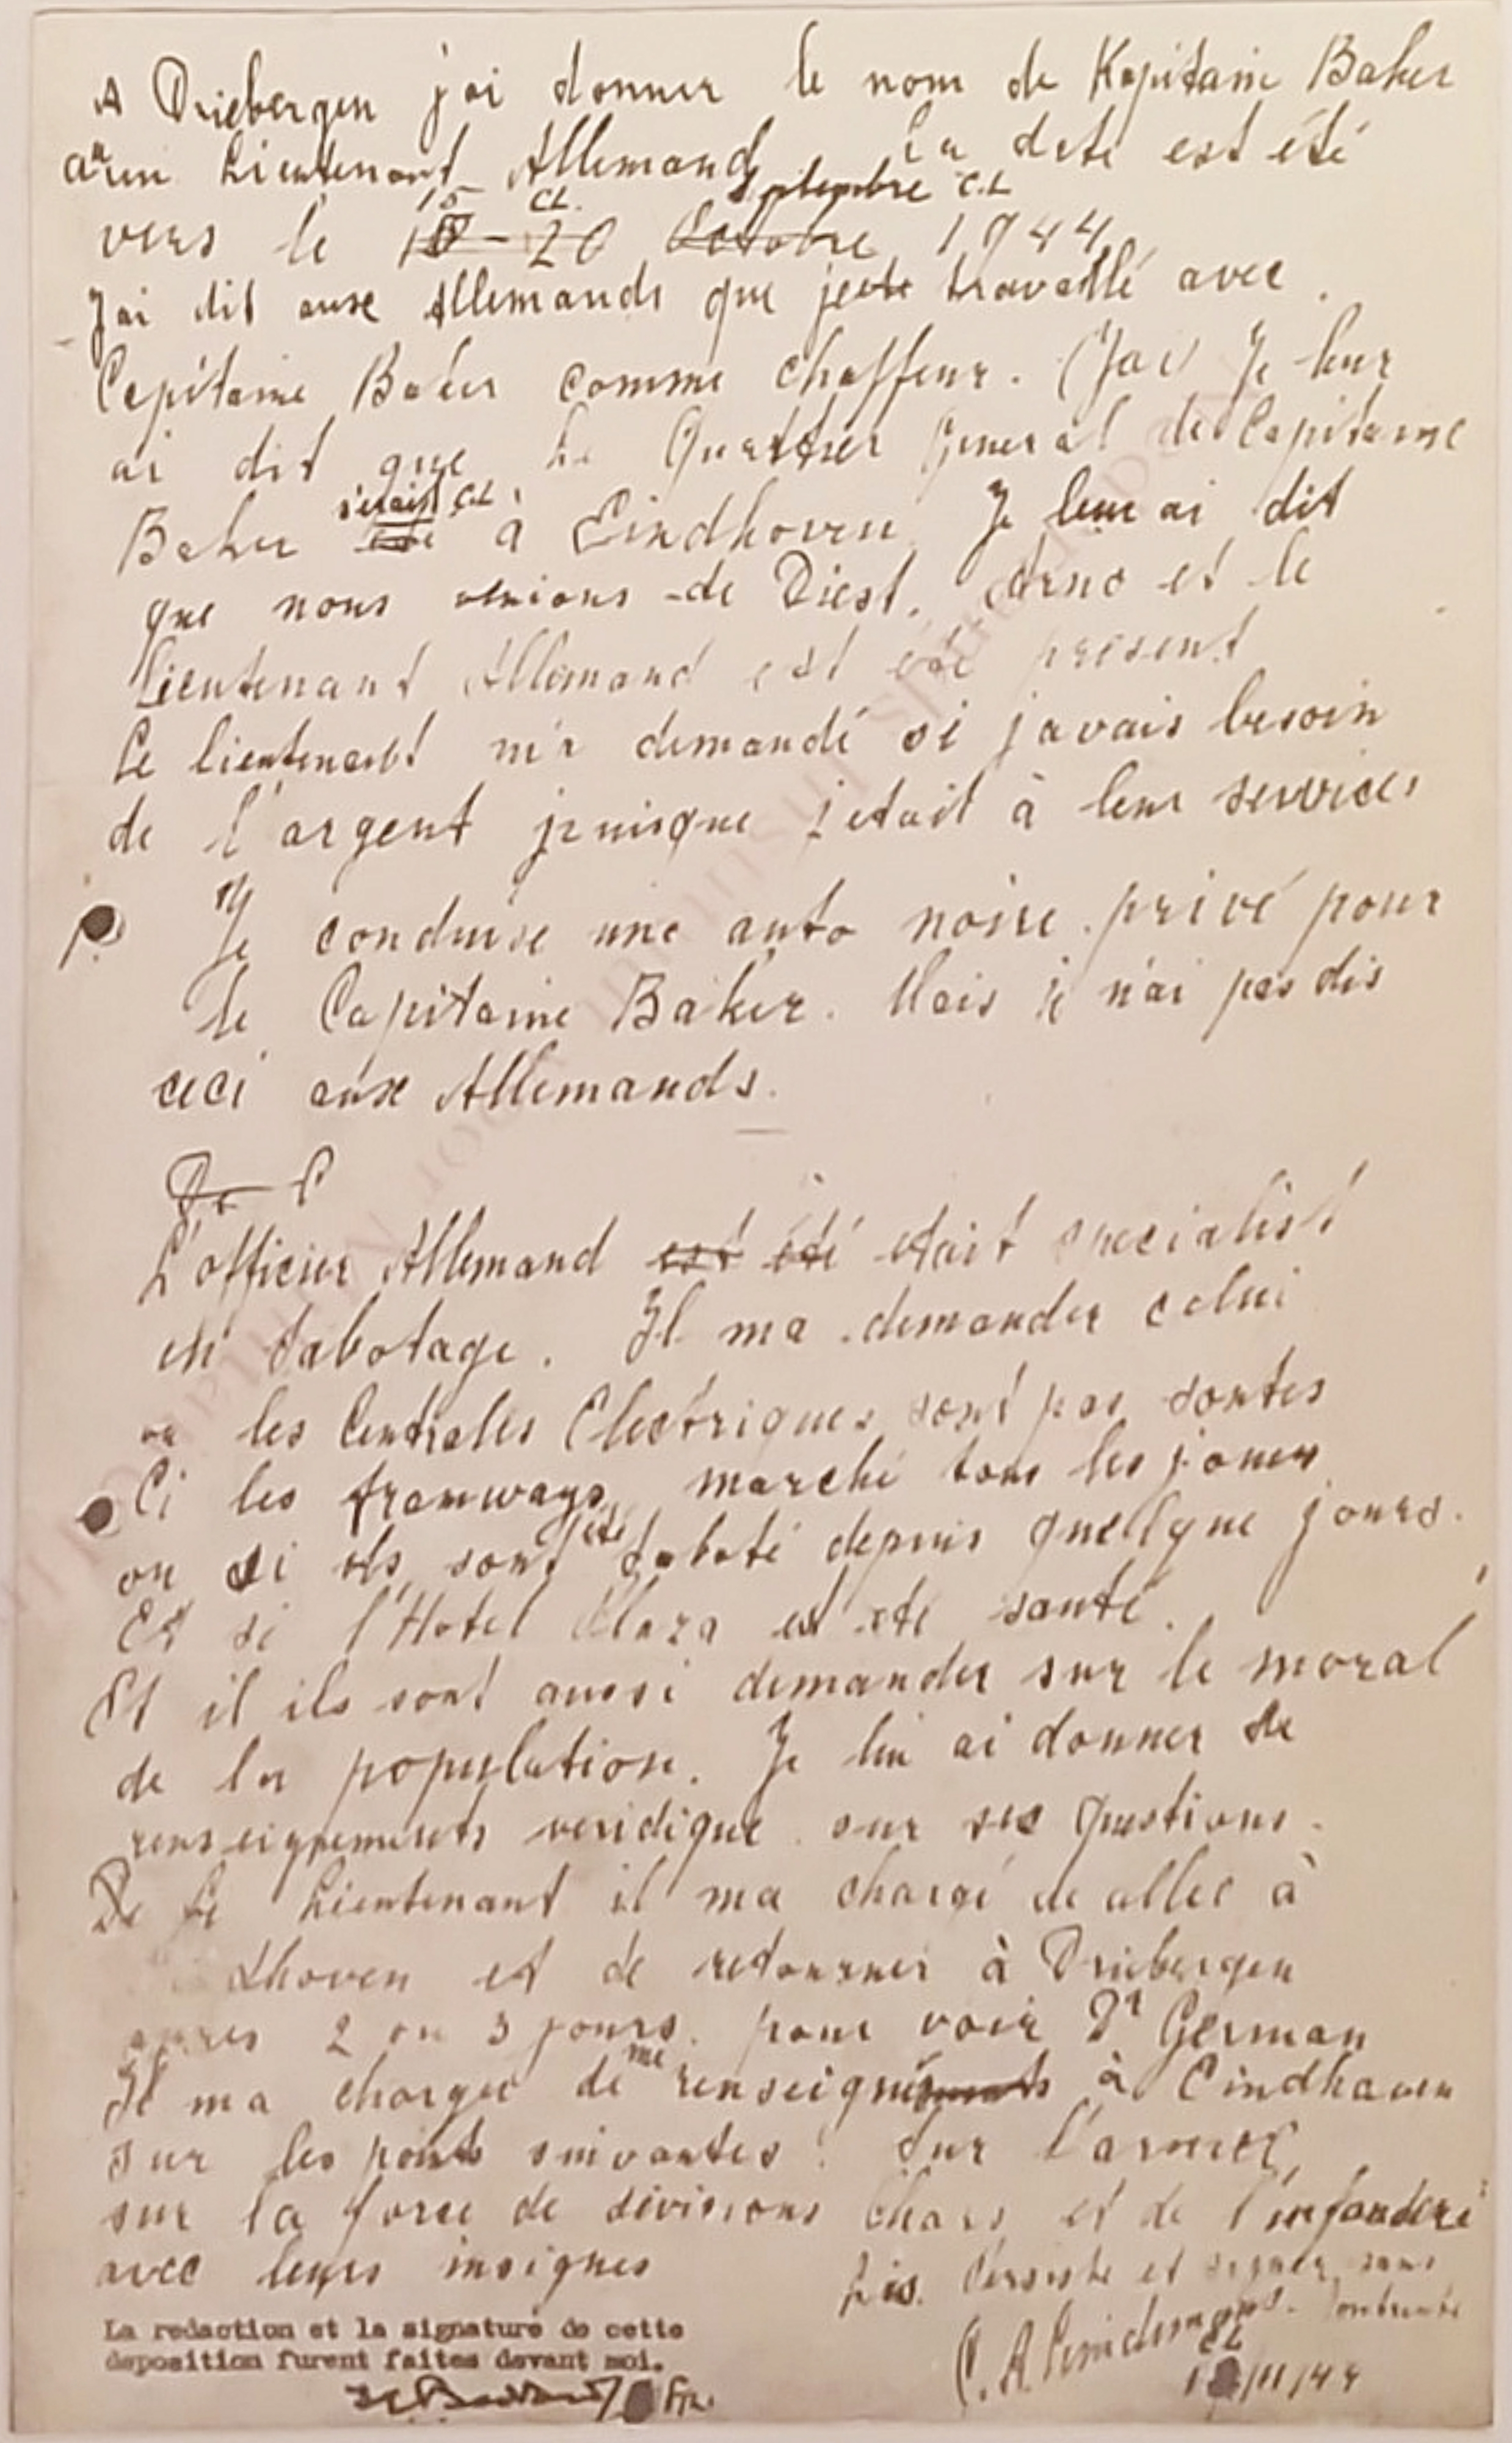 A Driebergen j'ai donner le nom de Kapitaine Baker
a un Lieutenant Allemand. La date est été
15 CL. Septembre C.L
vers le 20 Octobre 1944
J'ai dit aux Allemands que travaillé avec
Capitaine Baker comme chaffeur. (Jai) Je leur
ai dit que le Quartier General de Capitaine
CL
Baker à Eindhoven. Je leur ai dit
que nous venions de Diest. Arno et le
Lieutenant Allemand est été present
Le lieutenant m'a demandé si javais besoin
de l'argent puisque j'etait à leur services
Je conduise une auto noire privé pour
le Capitaine Baker. Mais je n'ai pas dis
ceci aux Allemands.
L'officier Allemand est été etait specialist
en sabotage. Il ma demander celui
les Centrales Electriques sont pas sautes
Ci les tramways marché tous les jours
été
ou si ils sont saboté depuis quellque jours.
Et si l'Hotel Plaza est été sauté.
Et il ils sont aussi demander sur le moral
de la population. Je lui ai donner de
renseignements veridique sur ses questions.
De Le Lieutenant il ma chargé de aller à
dhoven et de retourner à Driebergen
apres 2 ou 3 jours. pour voir Dr German
me
Il ma charger de renseignements à Eindhoven
sur les points suivantes: Sur l'armée,
sur la force de divisions Chars et de l'infanderi
avec leurs insignes
Lis. Persiste et signer sans
contrainte
La redaction et la signature de cette
deposition furent faites devant moi.
C. A Lindemans.
CL
/11/44